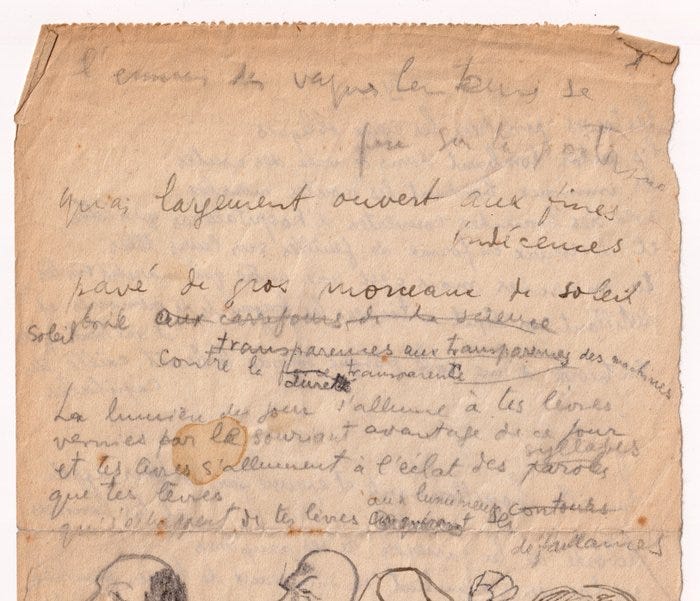 l'ennui des vagues lentement se
pose sur la poitrine
quai largement ouvert aux fines
indécences
pavé de gros morceaux de soleil
soleil
aux carrefours de la science
transparences aux transparences des machines
contre le transparente
dureté
La lumière du jour s'allume à tes lèvres
vernies par le souriant avantage de ce jour
syllabes
et tes lèvres s'allument à l'éclat des paroles
que tes lèvres
aux lumineux contours
qui s'échappent de tes lèvres
défaillances